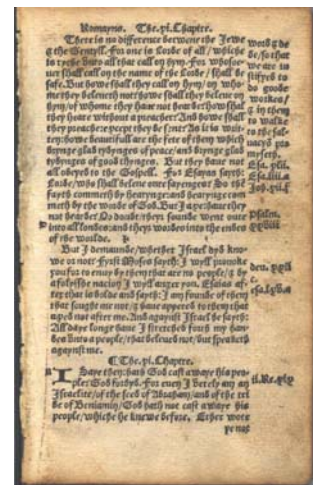 Romayns. The.xi.Chaptre.
There is no difference betwene the Jewe
& the Gentyll. For one is Lorde of all/ whiche
is ryche vnto all that call on hym. For whosoe-
uer shall call on the name of the Lorde/ shall be
safe. But howe shall they call on hym/ on whõ-
me they beleueth not? howe shall they beleue on
hym/ of whome they haue not hearde? how shal
they heare without a preacher? And howe shall
they preache: except they be sent? As it is writ-
ten: howe beautifull are the fete of them which
bringe glad tydynges of peace/ and bringe glad
tydynges of good thynges. But they haue not
all obeyed to the Gospell. For Esayas sayth:
Lorde/ who shall beleue oure sayenges? So thẽ
fayth commeth by hearynge: and hearynge com-
meth by the worde of God. But I aye: haue they
not hearde? No doubt: theyr sounde went oute
into all londes: and theyr wordes into the endes
of the worlde.
But I demaunde/ whether Israel dyd kno-
we or not? Fyrst Moses sayth: I wyll prouoke
you for to enuy by them that are no people/ & by
a folysshe nacion I wyll anger you. Esaias af-
ter that is bolde and sayth: I am founde of them
that sought me not/ & haue appered to them that
axed not after me. And agaynst Israel he sayth:
All daye longe haue I stretched forth my han-
des vnto a people/ that beleued not/ but speaketh
agaynst me.
¶ The.xi. Chaptre.
I Saye then: hath God cast awaye his peo-
ple? God forbyd. For euen I verely am an
Israelite/ of the seed of Abraham/ and of the tri
be of Beniamin/ God hath not cast awaye his
people/ whiche he knewe before. Ether wote
ye not
word & de
de/ so that
we are in
stifyed to
do goode
workes/
& in them
to walke
to the sal-
nacyõ pro
mysed.
Esa. xlii.
Esa. liii. a
Joh. xii. f
Psalm.
xviii
deu. xxxii
c.
esa. lxv. a
iii. Re. xix